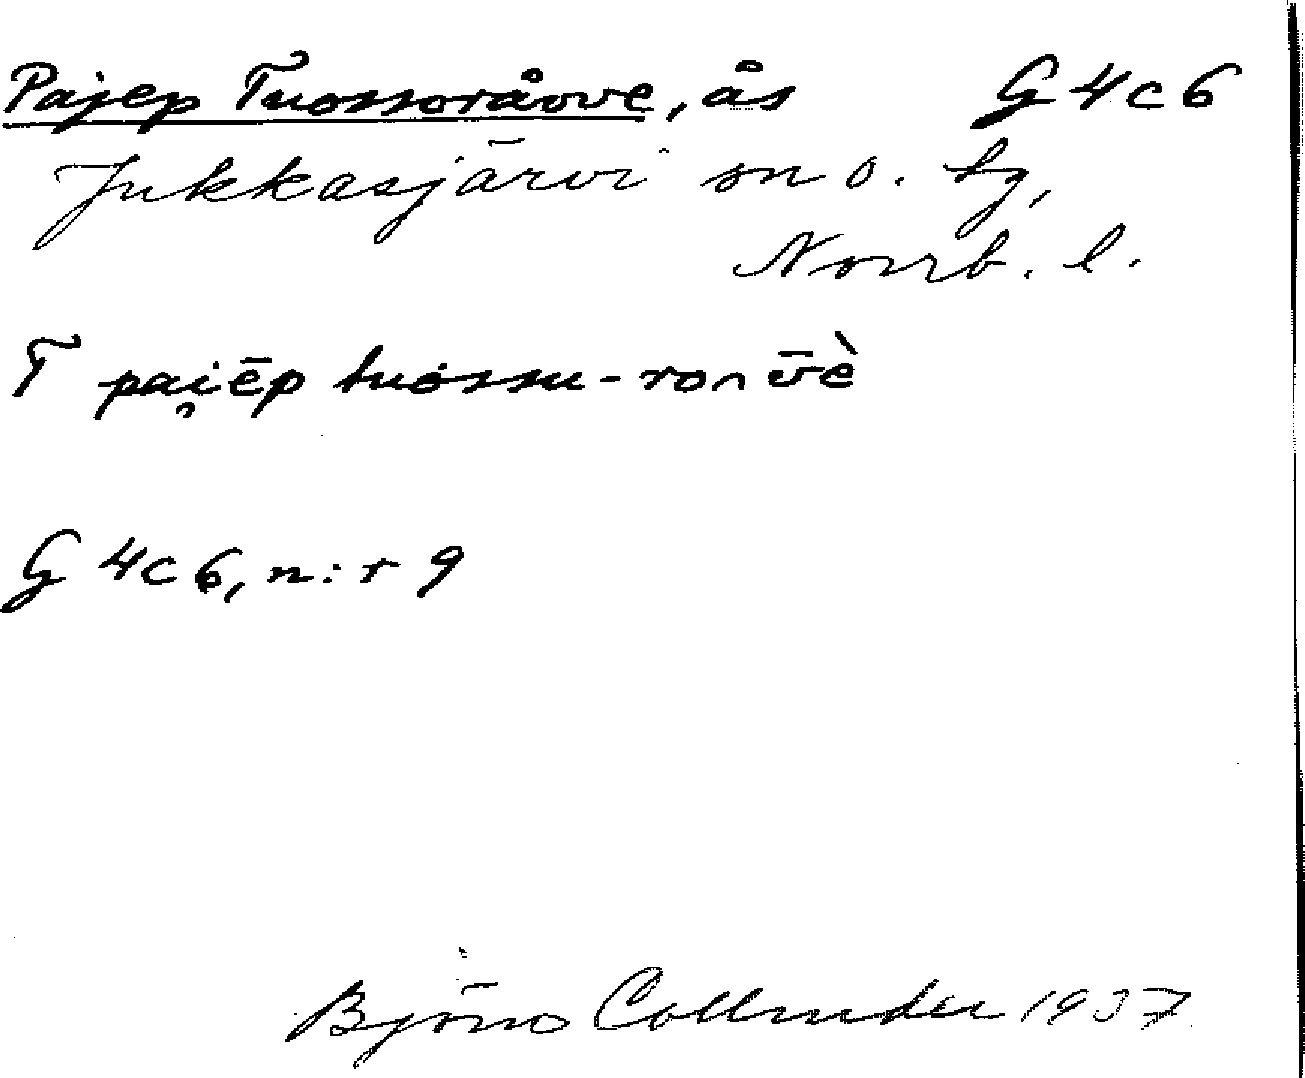 Pajep Tuossoråove, ås G4c6
Jukkasjärvi sn o. tg,
Norrb. l.
T pai̯ēp tuossu-ronv̄è
G 4c6, n:r 9
Björn Collinder 1937